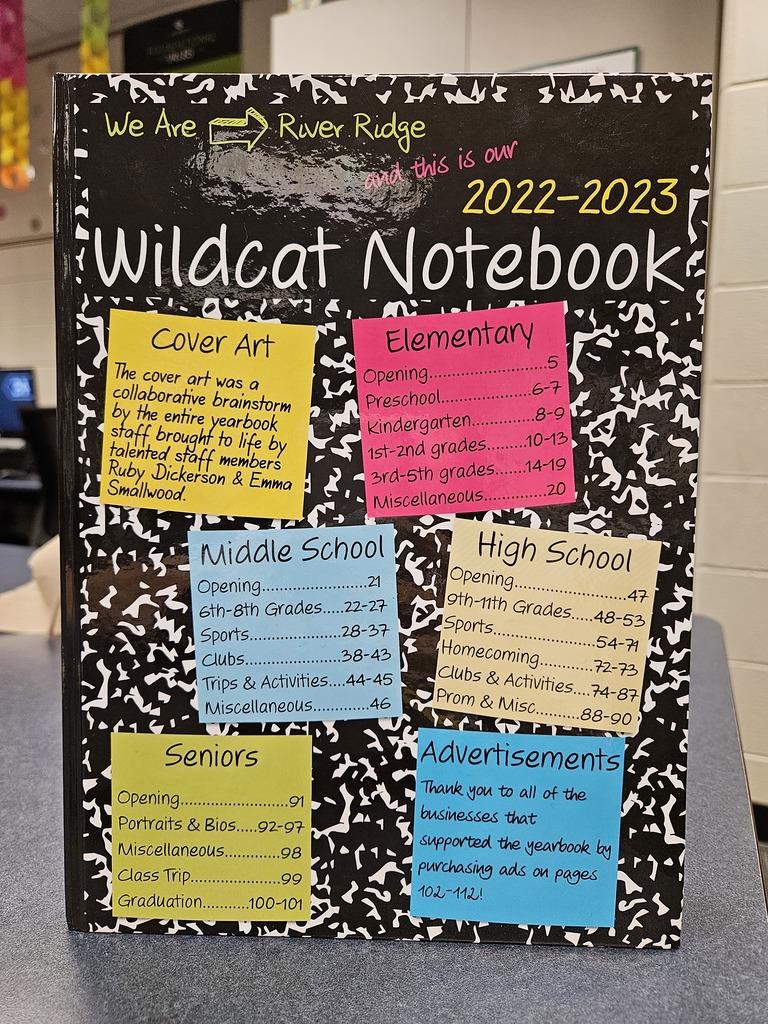 We Are River Ridge
and this is our
2022-2023
Wildcat Notebook
Cover Art
The cover art was a
collaborative brainstorm
by the entire yearbook
staff, brought to life by
talented staff members
Ruby Dickerson & Emma
Smallwood.
Elementary
Opening..........................5
Preschool....................6-7
Kindergarten..............8-9
1st-2nd grades........10-13
3rd-5th grades......14-19
Miscellaneous..............20
Middle School
Opening.......................21
6th-8th Grades.....22-27
Sports.....................28-37
Clubs......................38-43
Trips & Activities....44-45
Miscellaneous............46
High School
Opening.........................47
9th-11th Grades.....48-53
Sports......................54-71
Homecoming............72-73
Clubs & Activities....74-87
Prom & Misc..........88-90
Seniors
Opening........................91
Portraits & Bios.....92-97
Miscellaneous............98
Class Trip....................99
Graduation..........100-101
Advertisements
Thank you to all of the
businesses that
supported the yearbook by
purchasing ads on pages
102-112!